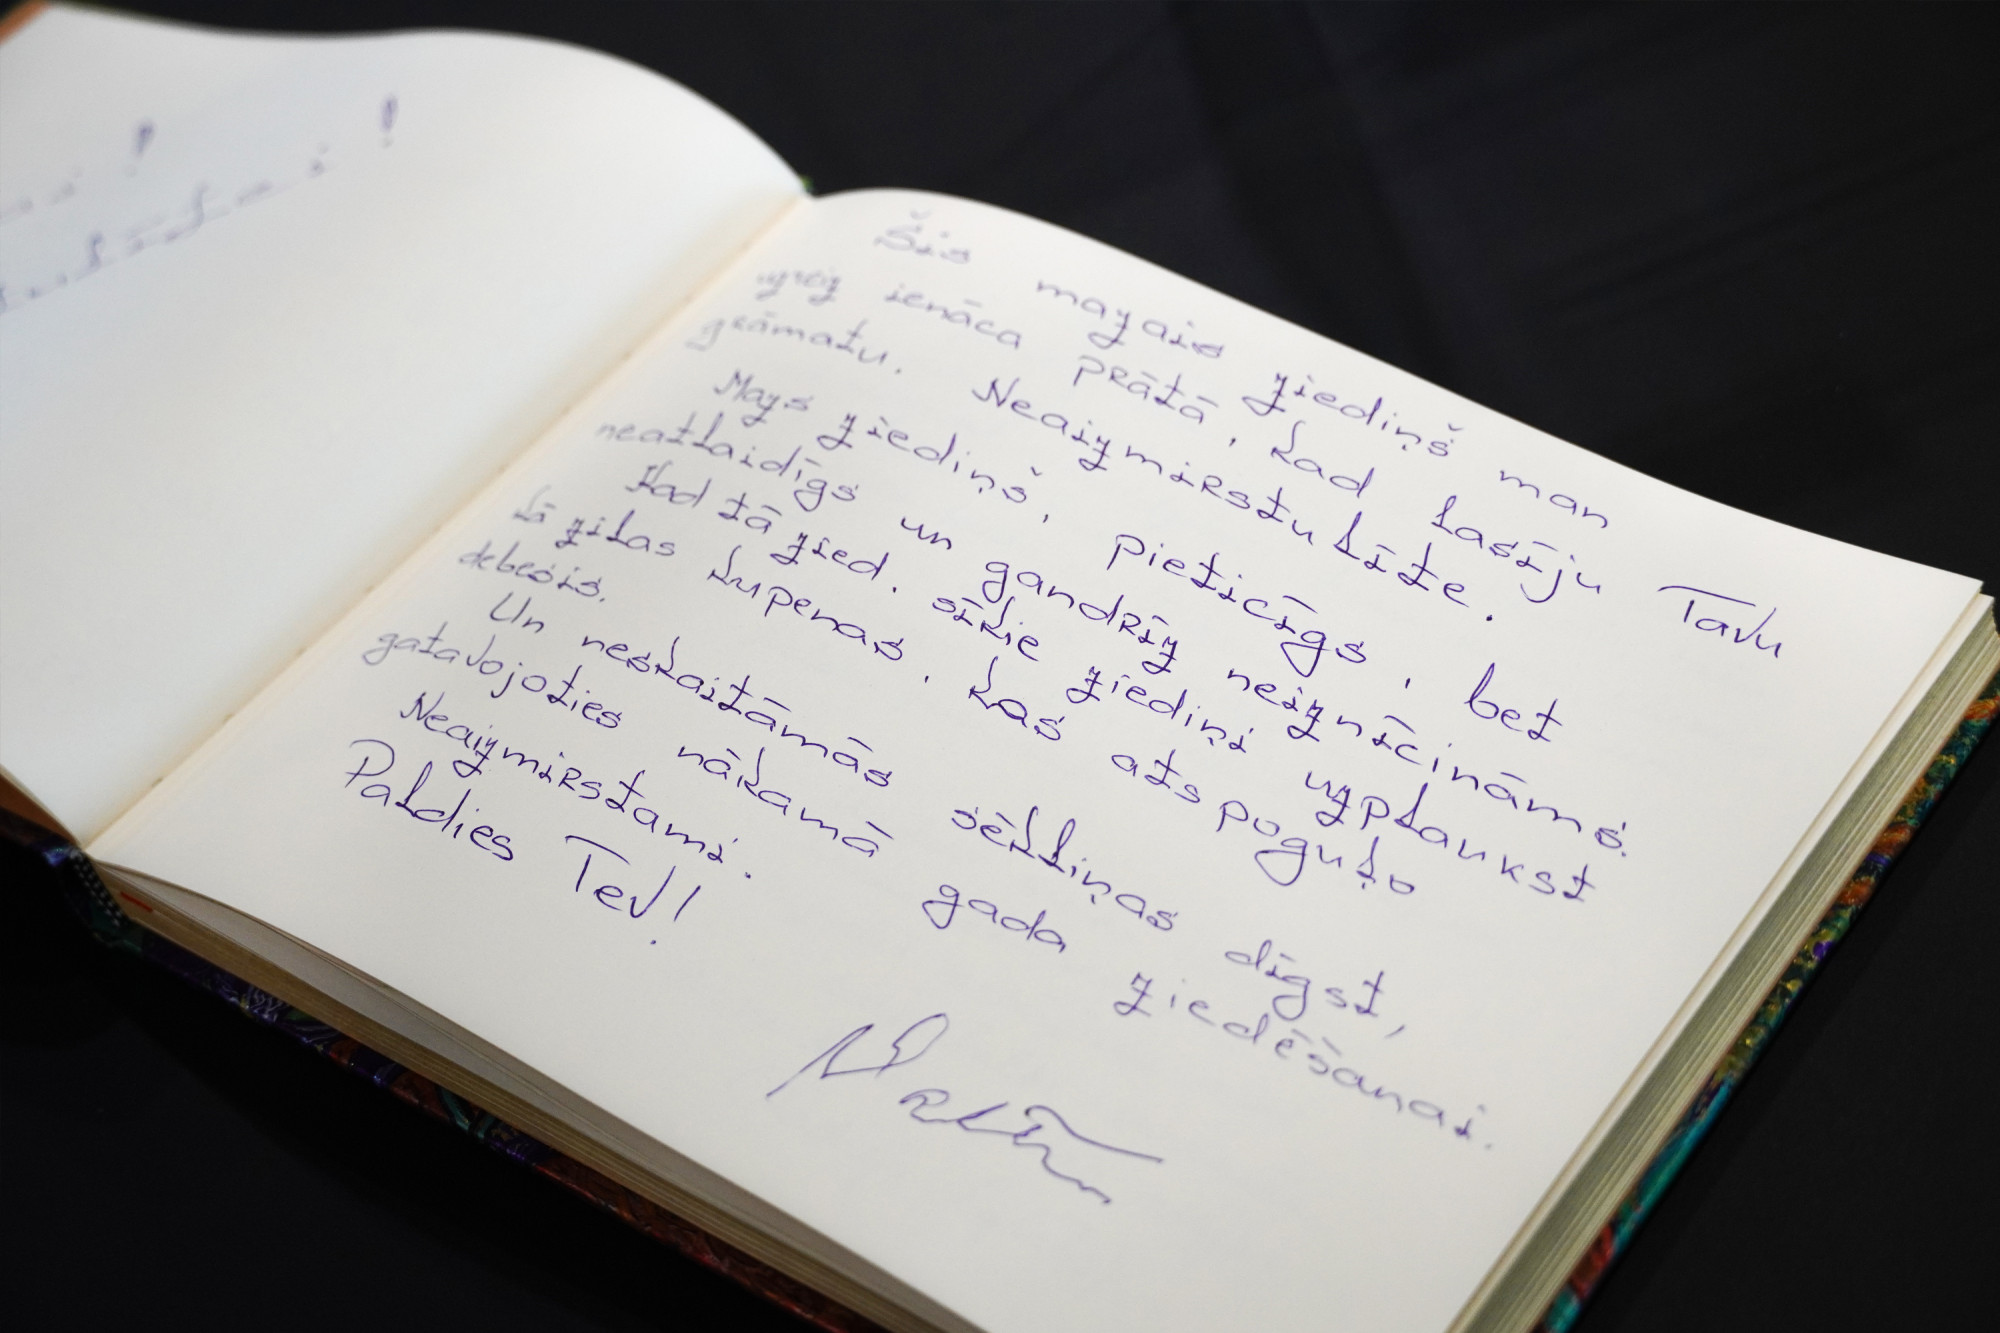 Šis mazais ziediņš man
uzreiz ienāca prātā, kad lasīju Tavu
grāmatu. Neaizmirstulīte.
Mazs ziediņš, pieticīgs, bet
neatlaidīgs un gandrīz neiznīcināms.
Kad tā zied, sīkie ziediņi uzplaukst
kā zilas kupenas, kas atspoguļo
debesis.
Un neskaitāmās sēkliņas dīgst,
gatavojoties nākamā gada ziedēšanai.
Neaizmirstami.
Paldies Tev!